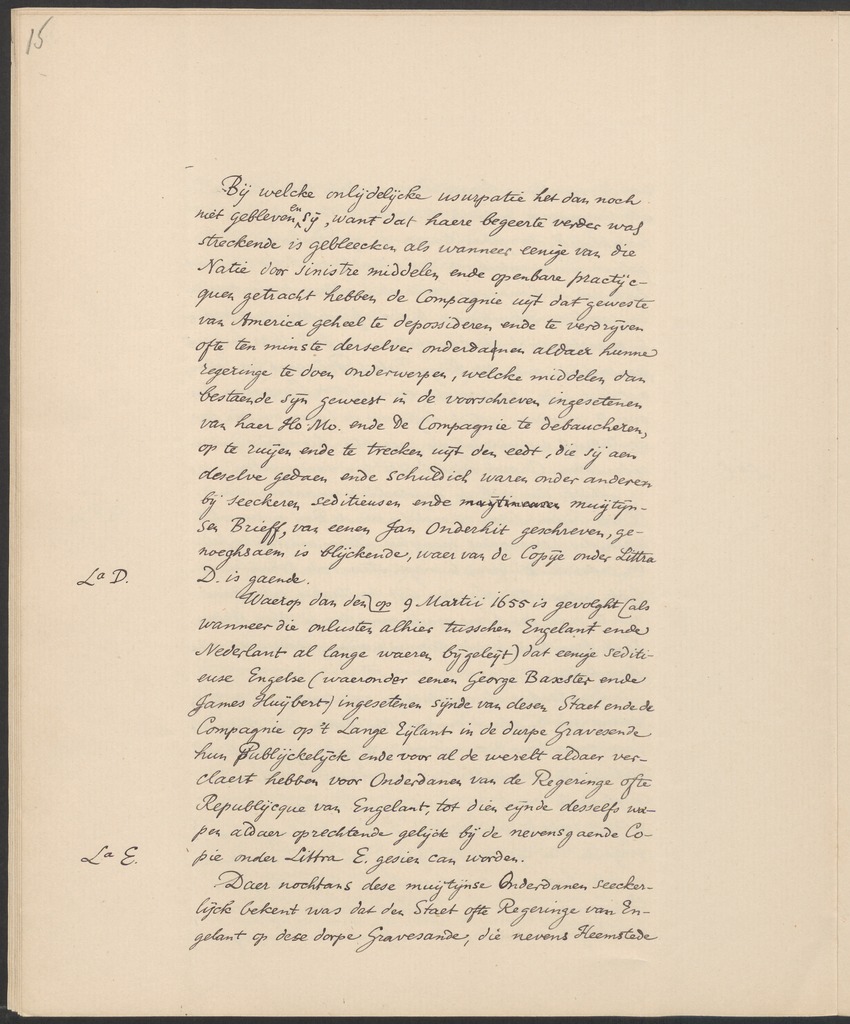 15
Bij welcke onlijdelijcke usurpatie het dan noch
niet gebleven en sij, want dat haere begeerte verder was
streckende is gebleecken als wanneer eenige van die
Natie door sinistre middelen ende openbare practijc-
quen getracht hebben de Compagnie uijt dat geweste
van America geheel te depossideren ende te verdrijven
ofte ten minste derselver onderdanen aldaer hunne
regeringe te doen onderwerpen, welcke middelen dan
bestaende sijn geweest in de voorschreven ingesetenen
van haer Ho: Mo. ende De Compagnie te debaucheren,
op te ruijen ende te trecken uijt den eedt, die sij aen
deselve gedaen ende schuldich waren onder anderen
bij seeckeren seditieusen ende muijtineusen muijtijn-
sen Brieff, van eenen Jan Onderhil geschreven, ge-
noeghsaem is blijckende, waer van de Copije onder Littra
La D.
D. is gaende.
Waerop dan den op 9 Martii 1655 is gevolght (als
wanneer die onlusten alhier tusschen Engelant ende
Nederlant al lange waeren bijgeleijt) dat eenige sediti-
euse Engelse (waeronder eenen George Baxster ende
James Huijbert) ingesetenen sijnde van desen Staet ende de
Compagnie op 't Lange Eijlant in de durpe Gravesende
hun Publijckelijck ende voor al de werelt aldaer ver-
claert hebben voor Onderdanen van de Regeringe ofte
Republijcque van Engelant, tot dien eijnde desselfs wa-
pen aldaer oprechtende gelijck bij de nevensgaende Co-
La E.
pie onder Littra E. gesien can worden.
Daer nochtans dese muijtijnse Onderdanen seecker-
lijck bekent was dat den Staet ofte Regeringe van En-
gelant op dese dorpe Gravesande, die nevens Heemstede